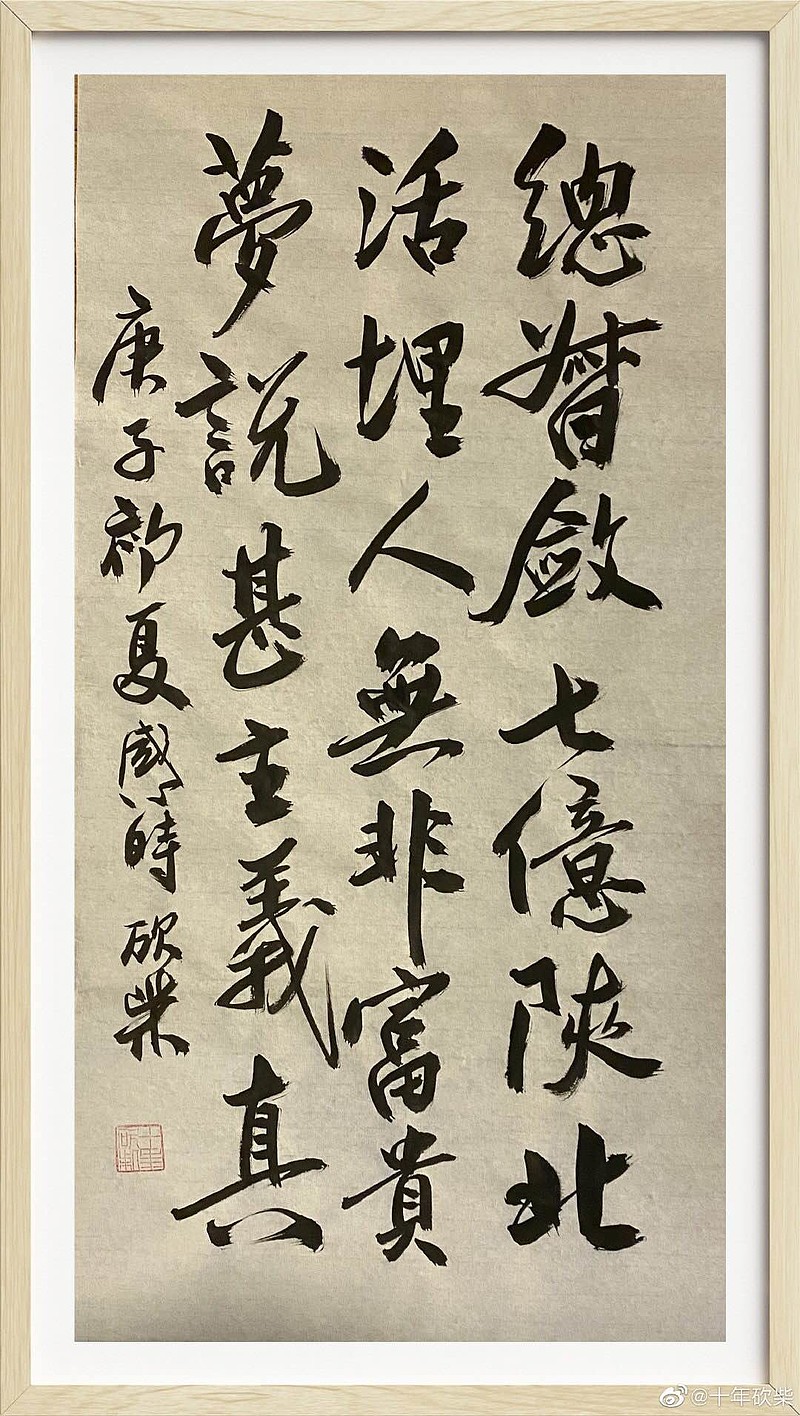 總督斂七億陝北
活埋人無非富貴
夢說甚主義真
庚子初夏感時 砍柴
十年砍柴
@十年砍柴